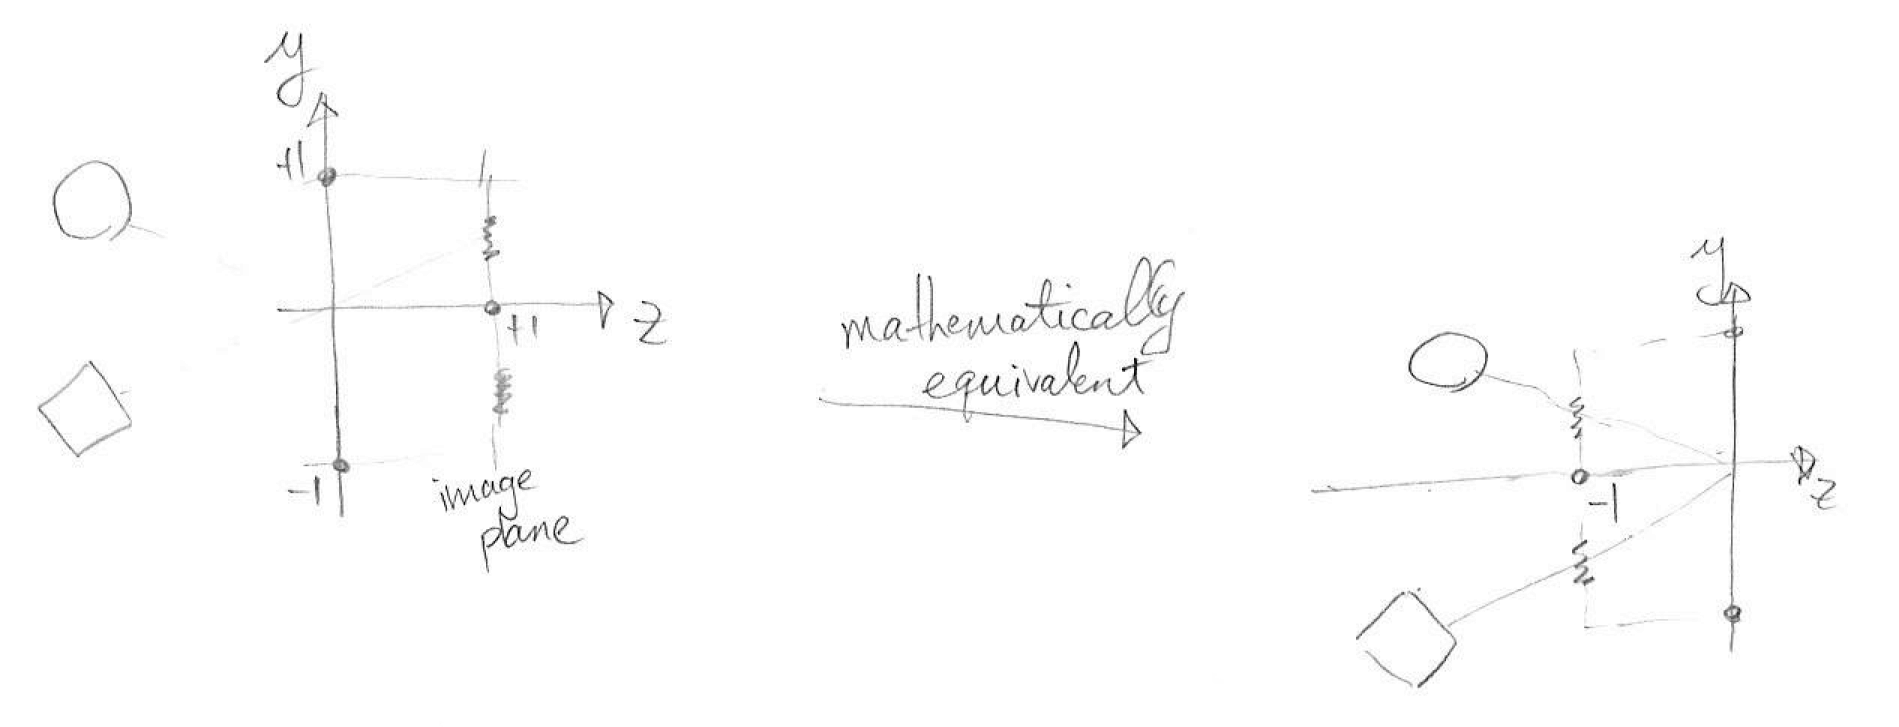 y
+1
+1
z
-1
image
plane
mathematically
equivalent
y
-1
z